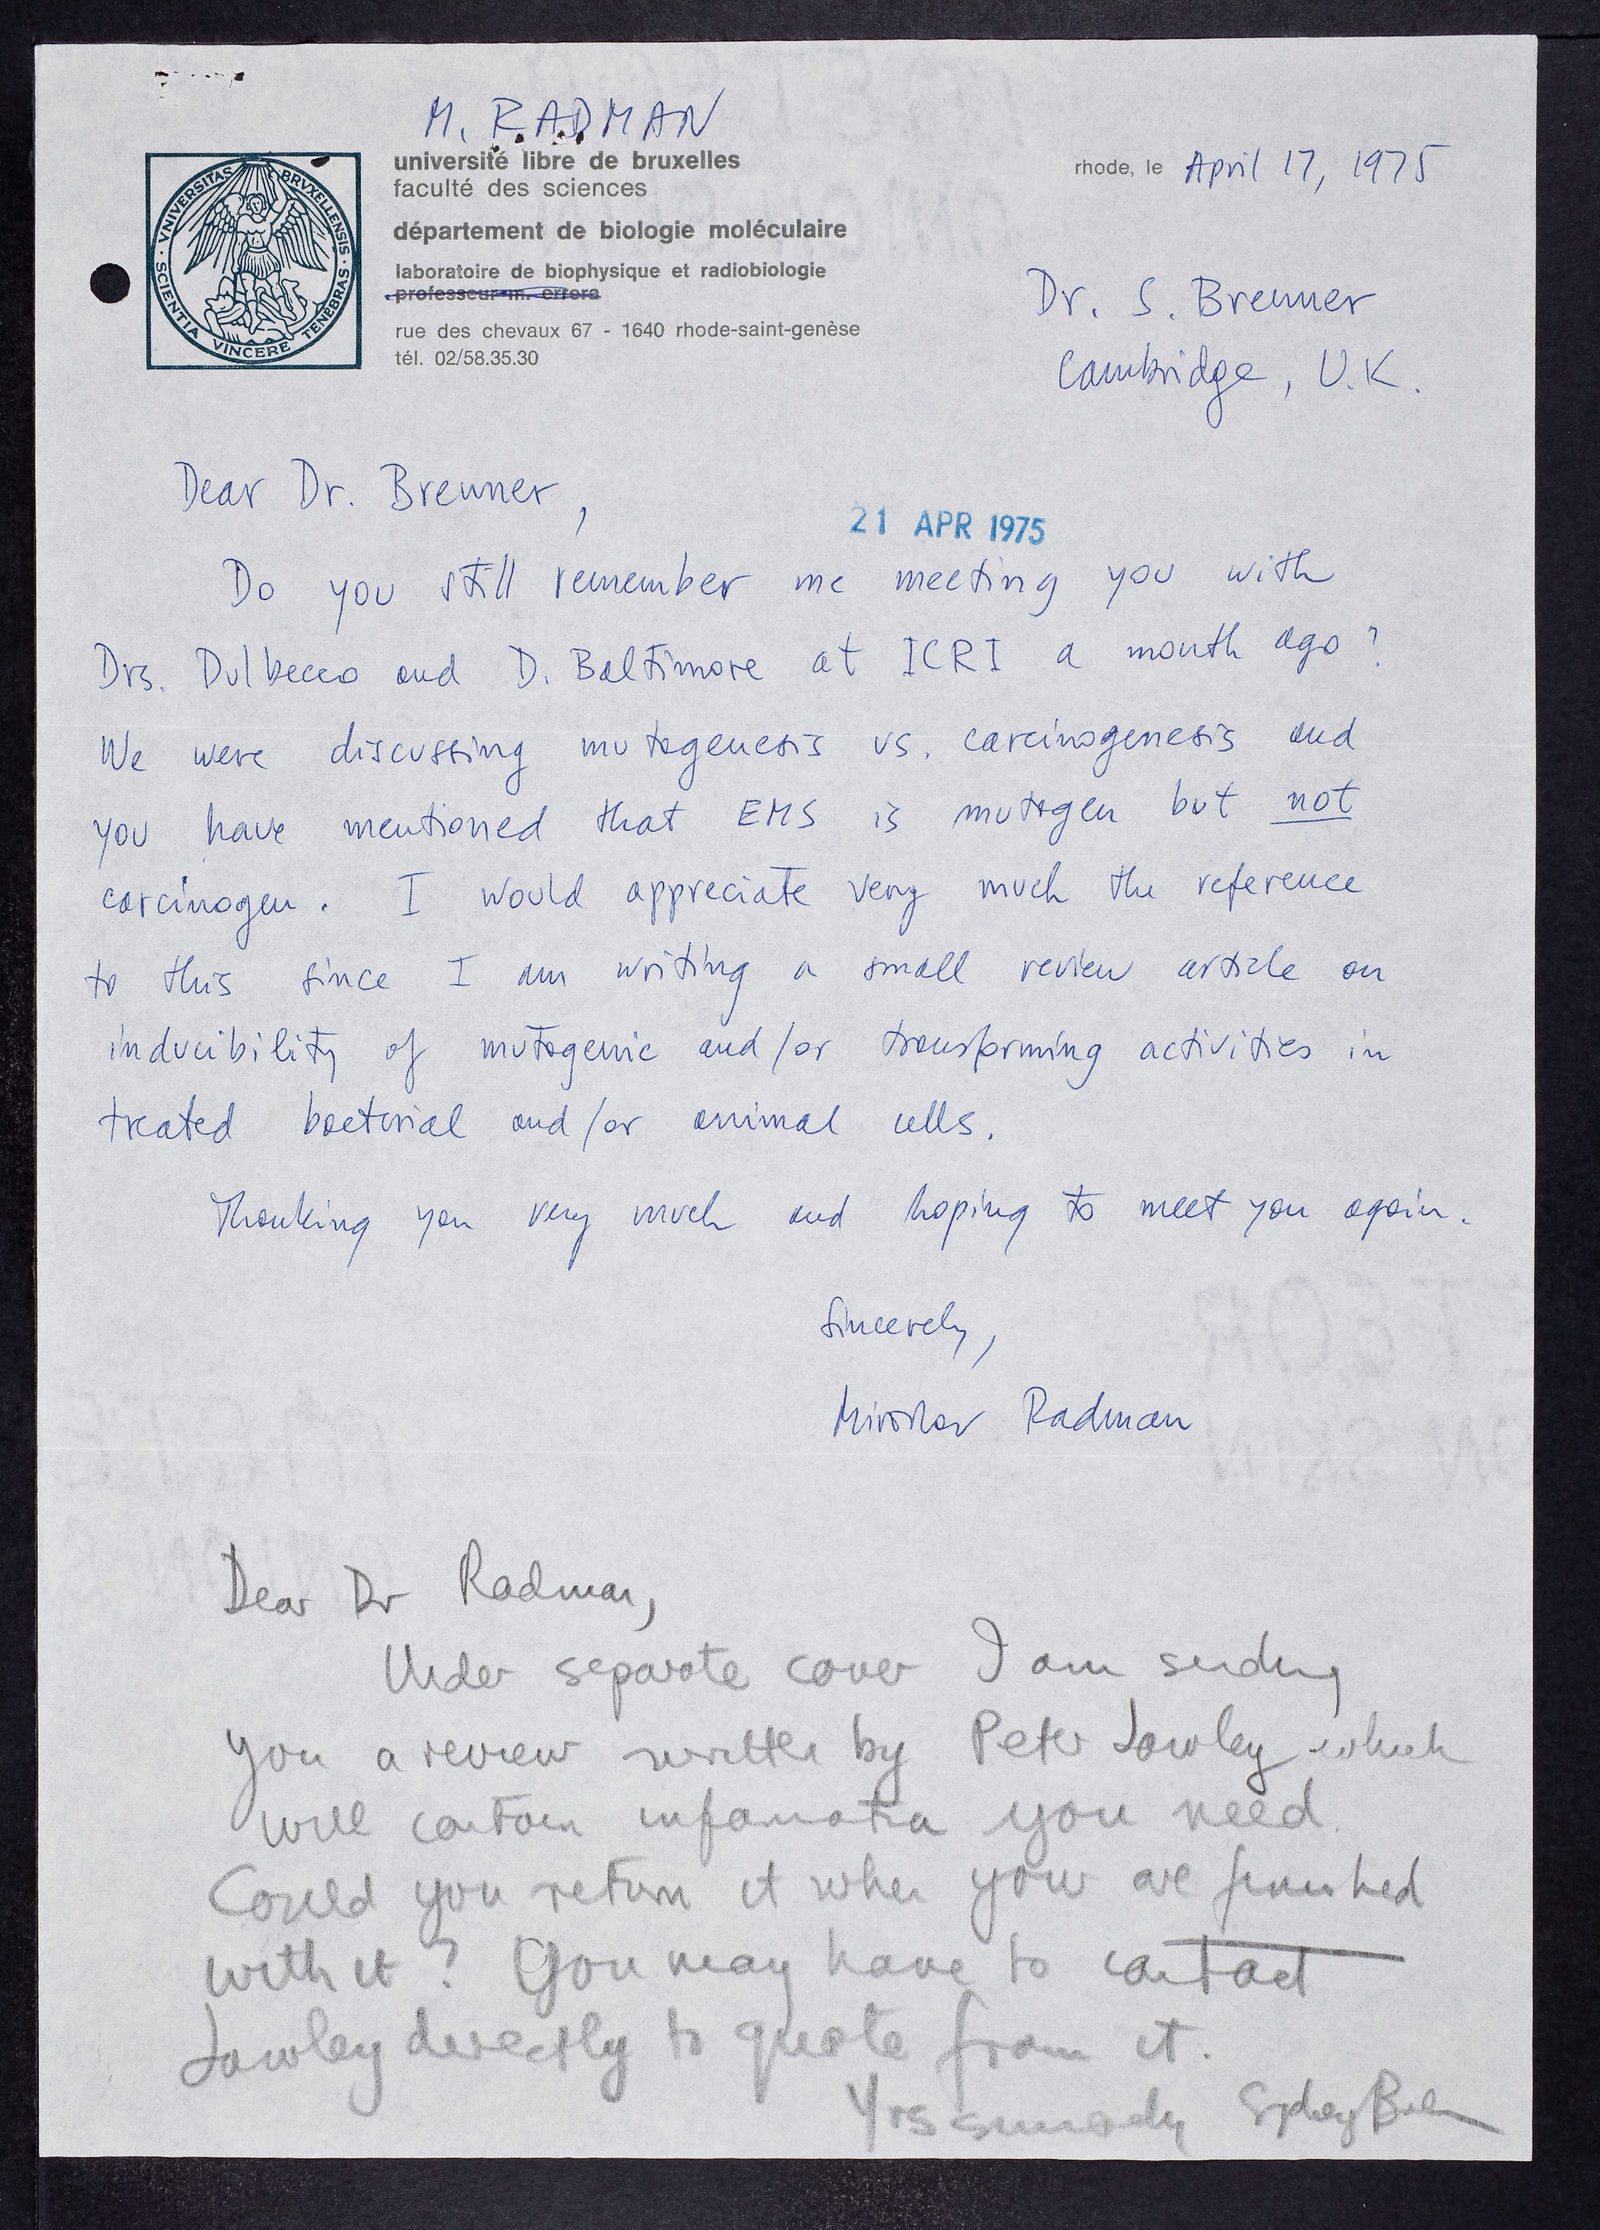 M. RADMAN
université libre de bruxelles
faculté des sciences
département de biologie moléculaire
laboratoire de biophysique et radiobiologie
professeur m. errera
rue des chevaux 67 - 1640 rhode-saint-genèse
tél. 02/58.35.30
VNIVERSITAS BRVXELLENSIS
SCIENTIA VINCERE TENEBRAS
rhode, le April 17, 1975
Dr. S. Brenner
Cambridge, U.K.
Dear Dr. Brenner,
21 APR 1975
Do you still remember me meeting you with
Drs. Dulbecco and D. Baltimore at ICRI a month ago?
We were discussing mutagenesis vs. carcinogenesis and
you have mentioned that EMS is mutagen but not
carcinogen. I would appreciate very much the reference
to this since I am writing a small review article on
inducibility of mutagenic and/or transforming activities in
treated bacterial and/or animal cells.
Thanking you very much and hoping to meet you again.
Sincerely,
Miroslav Radman
Dear Dr Radman,
Under separate cover I am sending
you a review written by Peter Lawley which
will contain information you need.
Could you return it when your are finished
with it? You may have to contact
Lawley directly to quote from it.
Yrs sincerely Sydney Brenner